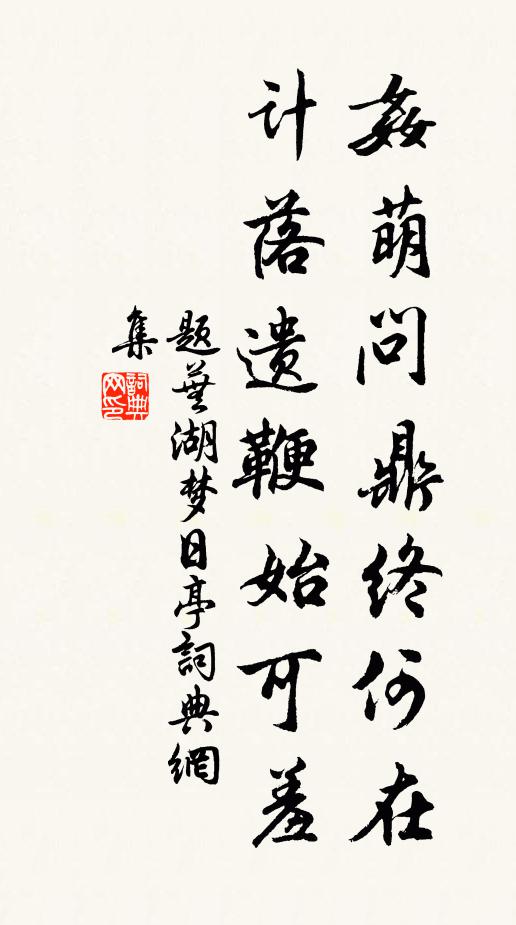 姦萌问鼎终何在
计落遗鞭始可羞
题芜湖梦日亭詞典網
集
詞典
网印